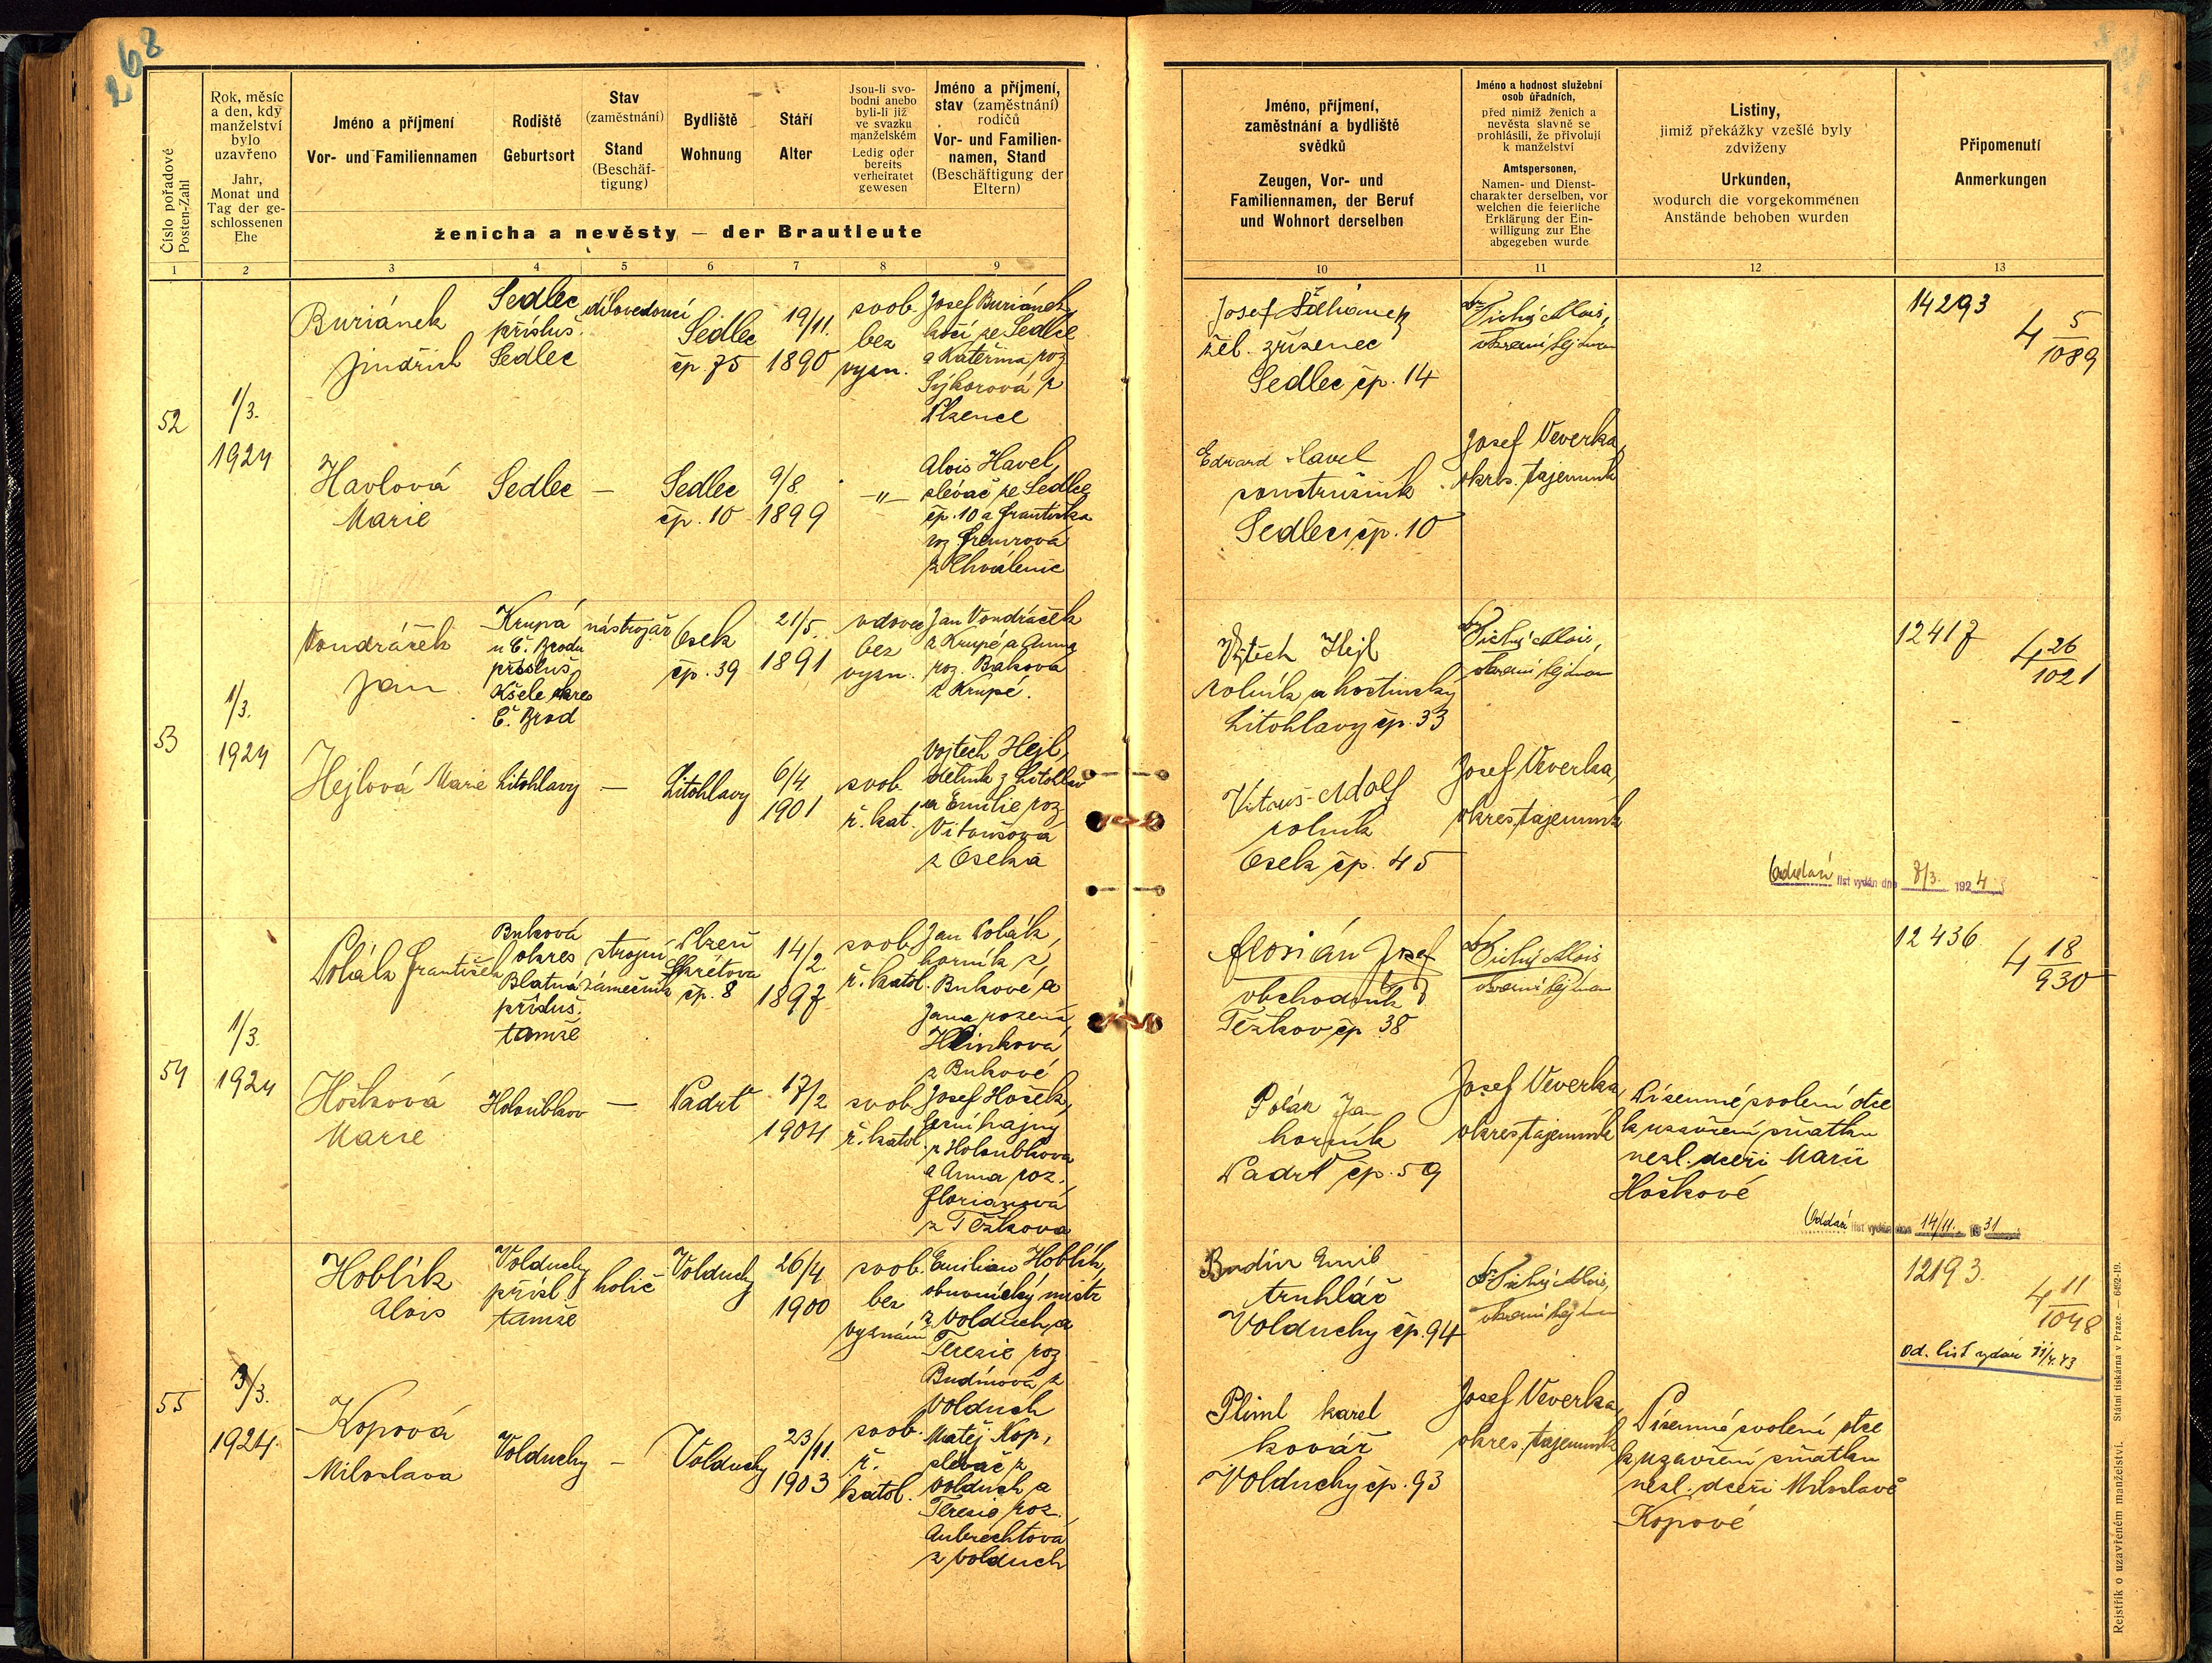 268
Číslo pořadové
Posten-Zahl
Rok, měsíc
a den, kdy
manželství
bylo
uzavřeno
Jahr,
Monat und
Tag der ge-
schlossenen
Ehe
Jméno a příjmení
Vor- und Familiennamen
Rodiště
Geburtsort
Stav
(zaměstnání)
Stand
(Beschäf-
tigung)
Bydliště
Wohnung
Stáří
Alter
Jsou-li svo-
bodni anebo
byli-li již
ve svazku
manželském
Ledig oder
bereits
verheiratet
gewesen
Jméno a příjmení,
stav (zaměstnání)
rodičů
Vor- und Familien-
namen, Stand
(Beschäftigung der
Eltern)
ženicha a nevěsty — der Brautleute
1 2 3 4 5 6 7 8 9
Jméno, příjmení,
zaměstnání a bydliště
svědků
Zeugen, Vor- und
Familiennamen, der Beruf
und Wohnort derselben
Jméno a hodnost služební
osob úřadních,
před nimiž ženich a
nevěsta slavně se
prohlásili, že přivolují
k manželství
Amtspersonen,
Namen- und Dienst-
charakter derselben, vor
welchen die feierliche
Erklärung der Ein-
willigung zur Ehe
abgegeben wurde
Listiny,
jimiž překážky vzešlé byly
zdviženy
Urkunden,
wodurch die vorgekommenen
Anstände behoben wurden
Připomenutí
Anmerkungen
10 11 12 13
52
1/3.
1924
Buriánek
Jindřich
Sedlec
příslus.
Sedlec
dílovedoucí
Sedlec
čp. 75
19/11.
1890
svob.
bez
vyzn.
Josef Buriánek,
kočí ze Sedlce
a Kateřina roz
Sýkorová z
Plzence
Josef
žel. zřízenec
Sedlec čp. 14
Dr Tichý Alois,
okresní hejtman
14293
4 5/1089
Havlová
Marie
Sedlec
—
Sedlec
čp. 10
9/8.
1899
—„—
Alois Havel,
slévač ze Sedlce
čp. 10 a Františka
roz
z Chválenic
Edvard Havel
soustružník
Sedlec čp. 10
Josef Veverka,
okres. tajemník
53
1/3.
1924
Vondráček
Jan
Krupá
u Č. Brodu
přísluš.
Kšele okres
Č. Brod
nástrojař
Osek
čp. 39
21/5.
1891
vdovec
bez
vyzn.
Jan Vondráček
z Krupé a Anna
roz. Bakova
z Krupé.
Vojtěch Hejl
rolník a hostinský
Litohlavy čp. 33
Dr Tichý Alois,
okresní hejtman
12417
4 26/1021
Hejlová Marie
Litohlavy
—
Litohlavy
6/4
1901
svob.
ř. kat.
Vojtěch Hejl,
dělník z Litohlav
a Emilie roz
Vitoušová
z Oseka
Vitouš Adolf
rolník
Osek čp. 45
Josef Veverka,
okres. tajemník
Oddací list vydán dne 8/3. 1924
54
1/3.
1924
Polák František
Buková
okres
Blatná
přísluš.
tamže
strojní
zámečník
Plzeň
Škrétova
čp. 8
14/2.
1897
svob.
ř. katol.
Jan Polák,
horník z
Bukové a
Jana rozená
Hlinková
z Bukové
Florián Josef
obchodník
Těžkov čp 38
Dr Tichý Alois
okresní hejtman
12436
4 18/930
Hošková
Marie
Holoubkov
—
Padrť
17/2
1904
svob.
ř. katol.
Josef Hošek,
lesní hajný
z Holoubkova
a Anna roz.
Floriánová
z Těžkova
Polák Jan
horník
Padrť čp. 59
Josef Veverka,
okres. tajemník
Písemné svolení otce
k uzavření sňatku
nezl. dceři Marii
Hoškové
Oddací list vydán dne 14/11. 1931
55
3/3.
1924.
Hoblík
Alois
Volduchy
přísl
tamže
holič
Volduchy
26/4
1900
svob.
bez
vyznání
Emilian Hoblík,
obuvnický mistr
z Volduch a
Terezie roz
Budínová z
Volduch
Budín Emil
truhlář
Volduchy čp. 94
Dr Tichý Alois,
okresní hejtman
12193.
4 11/1048
od. list vydán 11/4.43
Kopová
Miloslava
Volduchy
—
Volduchy
23/11.
1903
svob.
ř.
katol.
Matěj Kop,
slévač z
Volduch a
Terezie roz.
Aubrechtová
z Volduch
Pliml Karel
kovář
Volduchy čp. 93
Josef Veverka,
okres. tajemník
Písemné svolení otce
k uzavření sňatku
nezl. dceři Miloslavě
Kopové
Rejstřík o uzavřeném manželství. Státní tiskárna v Praze. — 6492-19.